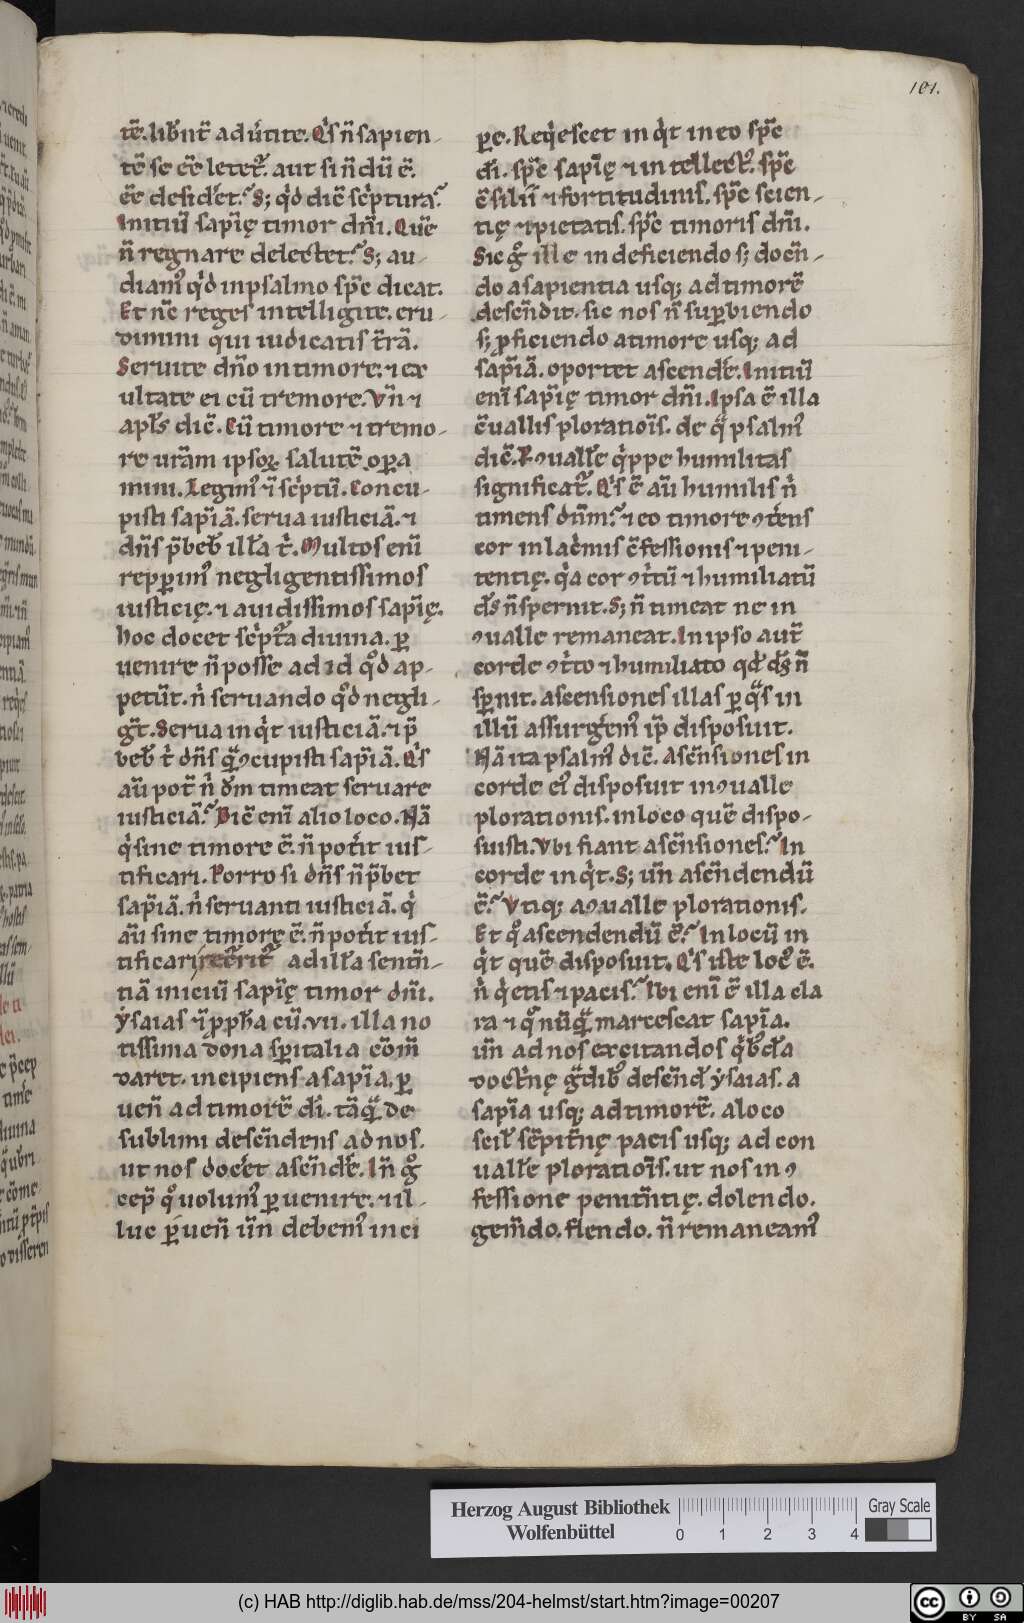 101.
tē. libn̄t adūtite. Qͥs n̄ sapien-
tē se eē letet᷑. aut si n̄ dū ē.
eē desidet᷑. S; qͥd dic̄ sc̄ptura.
Initiū sap̄ię timor dn̄i. Quē
n̄ regnare delectet. S; au-
diamꝰ qͥd in psalmo sp̄c dicat.
Et nc̄ reges intelligite. eru-
dimini qui iudicatis t̄rā.
Seruite dn̄o in timore. ⁊ ex
ultate ei cū tremore. Vn̄ ⁊
apl̄s dic̄. Cū timore ⁊ tremo-
re ur̄am ipsoꝝ salutē oꝑa
mini. Legimꝰ ī sc̄ptū. Concu-
pisti sap̄iā. serua iusticiā. ⁊
dn̄s p̄beb̄ ill̄a t̄. Multos eni
repperimꝰ negligentissimos
iusticię. ⁊ auidissimos sap̄ię.
hoc docet sc̄pt̄a diuina. ꝑ
uenire n̄ posse ad id qͦd ap-
petūt. nͥ seruando qͦd negli-
gt̄. Serua inqͥt iusticiā. ⁊ p̄
beb̄ t̄ dn̄s quā ꝯcupisti sap̄iā. Qͥs
aū pot̄ nͥ dm̄ timeat seruare
iusticiā. Dic̄ eni alio loco. Nā
qͥ sine timore ē. n̄ pot̄it ius-
tificari. Porro si dn̄s n̄ p̄bet
sap̄iā. nͥ seruanti iusticiā. qͥ
aū sine timore ē. n̄ pot̄it ius-
tificari. ad ill̄a sentn̄-
tiā iniciū sap̄ię timor dn̄i.
ẏsaias ī ꝓph̄a cū .vii. illa no
tissima dona sꝑitalia com̄
daret. incipiens a sap̄ia. ꝑ
uen̄ ad timorē dī. tāquā de
sublimi descēdens ad nos.
ut nos docet̄ ascēde. In̄ gͦ
cep̄ qͦ uolumꝰ ꝑuenire. ⁊ il-
luc ꝑuen̄ un̄ debemꝰ inci
ꝑe. Reqͥescet inqͥt in eo sp̄c
dī. sp̄c sap̄ię ⁊ intellectꝰ. sp̄c
c̄silii ⁊ fortitudinis. sp̄c scien-
tię ⁊ pietatis. sp̄c timoris dn̄i.
Sic gͦ ille in deficiendo s; docen̄-
do a sapientia usq; ad timorē
descen̄dit. sic nos n̄ suꝑbiendo
s; ꝓficiendo a timore usq; ad
sap̄iā. oportet ascend̄e. Initiū
eni sap̄ię timor dn̄i. Ipsa ē illa
c̄uallis ploratiois. de qͣ psalmꝰ
dic̄. Ꝯuall̄e qͥppe humilitas
significat᷑. Qͥs ē aū humilis nͥ
timens dn̄m. ⁊ eo timore ꝯtēns
cor in lac̄mis c̄fessionis ⁊ peni-
tentię. qͥa cor ꝯtͥtū ⁊ humiliatū
d̄s n̄ spernit. S; n̄ timeat ne in
ꝯualle remaneat. In ipso aut̄
corde ꝯtͥto ⁊ humiliato qd̄ d̄s n̄
sꝑnit. ascensiones illas ꝑ qͣs in
illū assurgemꝰ ip̄ disposuit.
Nā ita psalmꝰ dic̄. Ascēsiones in
corde eiꝰ disposuit in ꝯualle
plorationis. in loco quē dispo-
suisti. Vbi fiant ascēsiones. In
corde inqͥt. S; un̄ ascēdendū
ē. Vtiq; a ꝯualle plorationis.
Et qͦ ascendendū ē. In locū in
qͥt quē disposuit. Qͥs iste locꝰ ē.
nͥ qͥetis ⁊ pacis. Ibi eni ē illa cla
ra ⁊ qͣ nūquā marcescat sap̄ia.
un̄ ad nos excitandos qͥbꝰd̄a
doctͥnę gͣdibꝰ descēd̄ ẏsaias. a
sap̄ia usq; ad timorē. a loco
scil̄ sēpit̄nę pacis usq; ad con
uall̄e ploratiois. ut nos in ꝯ
fessione penitn̄tię. dolendo.
gem̄do. flendo. n̄ remaneamꝰ
Herzog August Bibliothek
Wolfenbüttel
0 1 2 3 4
Gray Scale
(c) HAB http://diglib.hab.de/mss/204-helmst/start.htm?image=00207
cc BY SA